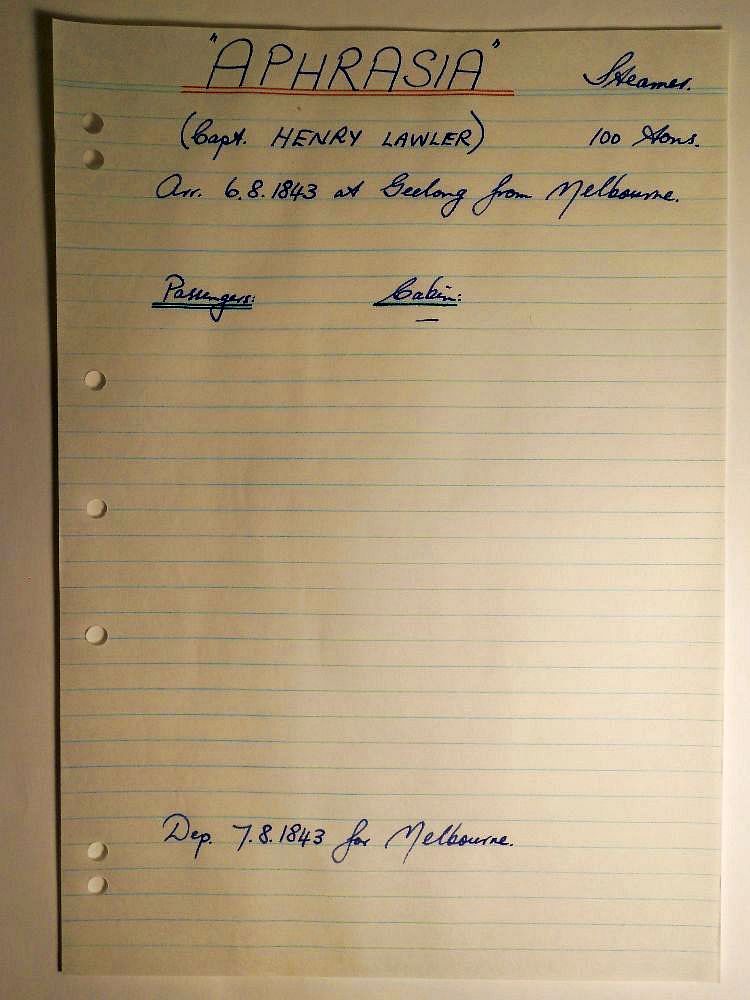 "APHRASIA" Steamer.
(Capt. HENRY LAWLER) 100 tons.
Arr. 6.8.1843 at Geelong from Melbourne.
Passengers: Cabin:
—
Dep. 7.8.1843 for Melbourne.